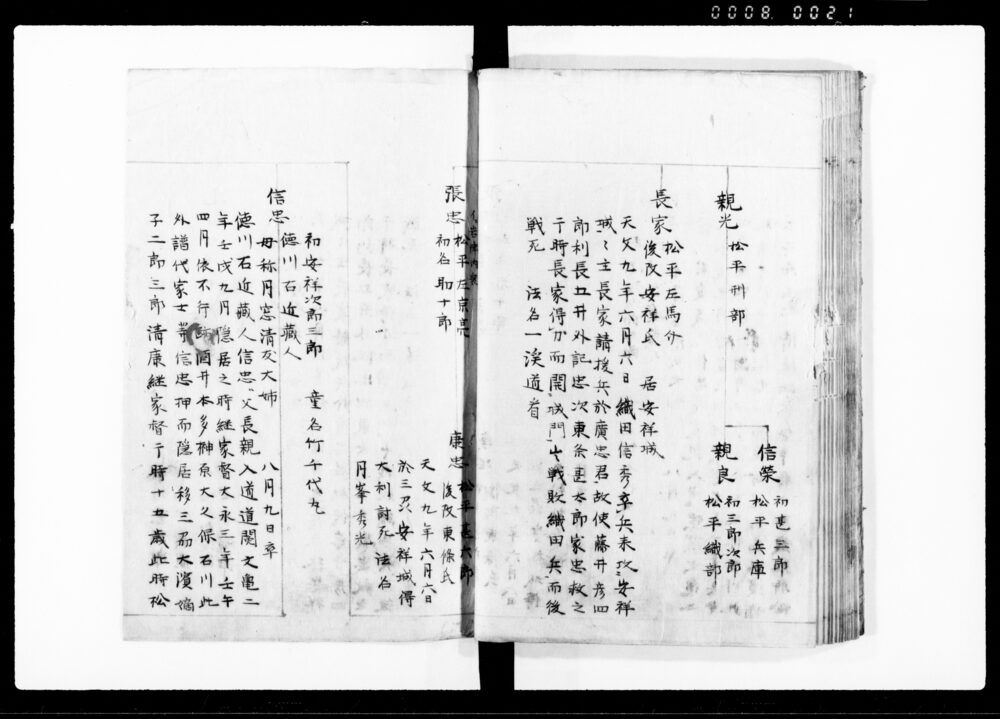 0008. 0021
親光 松平刑部
信榮 初甚三郎
松平兵庫
親良 初三郎次郎
松平織部
長家 松平左馬介
後改安祥氏 居安祥城
天文九年六月六日織田信秀率兵来攻安祥
城〻主長家請援兵於廣忠君故使藤井彦四
郎利長五井外記忠次東条甚太郎家忠救之
于時長家得力而開城門出戦敗織田兵而後
戦死 法名一渓道看
張忠 松平左京亮
初名助十郎
康忠 松平甚六郎
後改東條氏
天文九年六月六日
於三刕安祥城得
大利討死 法名
月峯秀光
初安祥次郎三郎 童名竹千代丸
德川右近藏人
信忠 母称月窓清友大姉 八月九日卒
德川右近藏人信忠父長親入道道閱文亀二
年壬戌九月隠居之時継家督大永三年壬午
四月依不行 酒井本多榊原大久保石川此
外譜代家士等信忠押而隠居移三刕大濱嫡
子二郎三郎清康継家督于時十五歳此時松